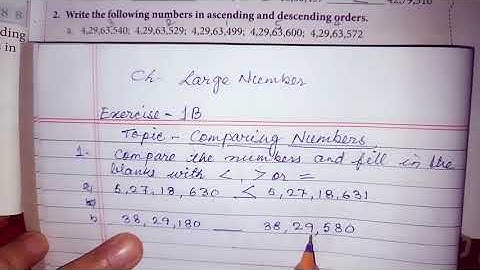 2. Write the following numbers in ascending and descending orders.
ding
s in
a. 4,29,63,540; 4,29,63,529; 4,29,63,499; 4,29,63,600; 4,29,63,572
Ch- Large Number
Exercise - 1B
Topic - Comparing Numbers
1- Compare the numbers and fill in the
blanks with <, > or =
a, 5,27,18,630 < 5,27,18,631
b, 38,29,180 __ 38,29,580